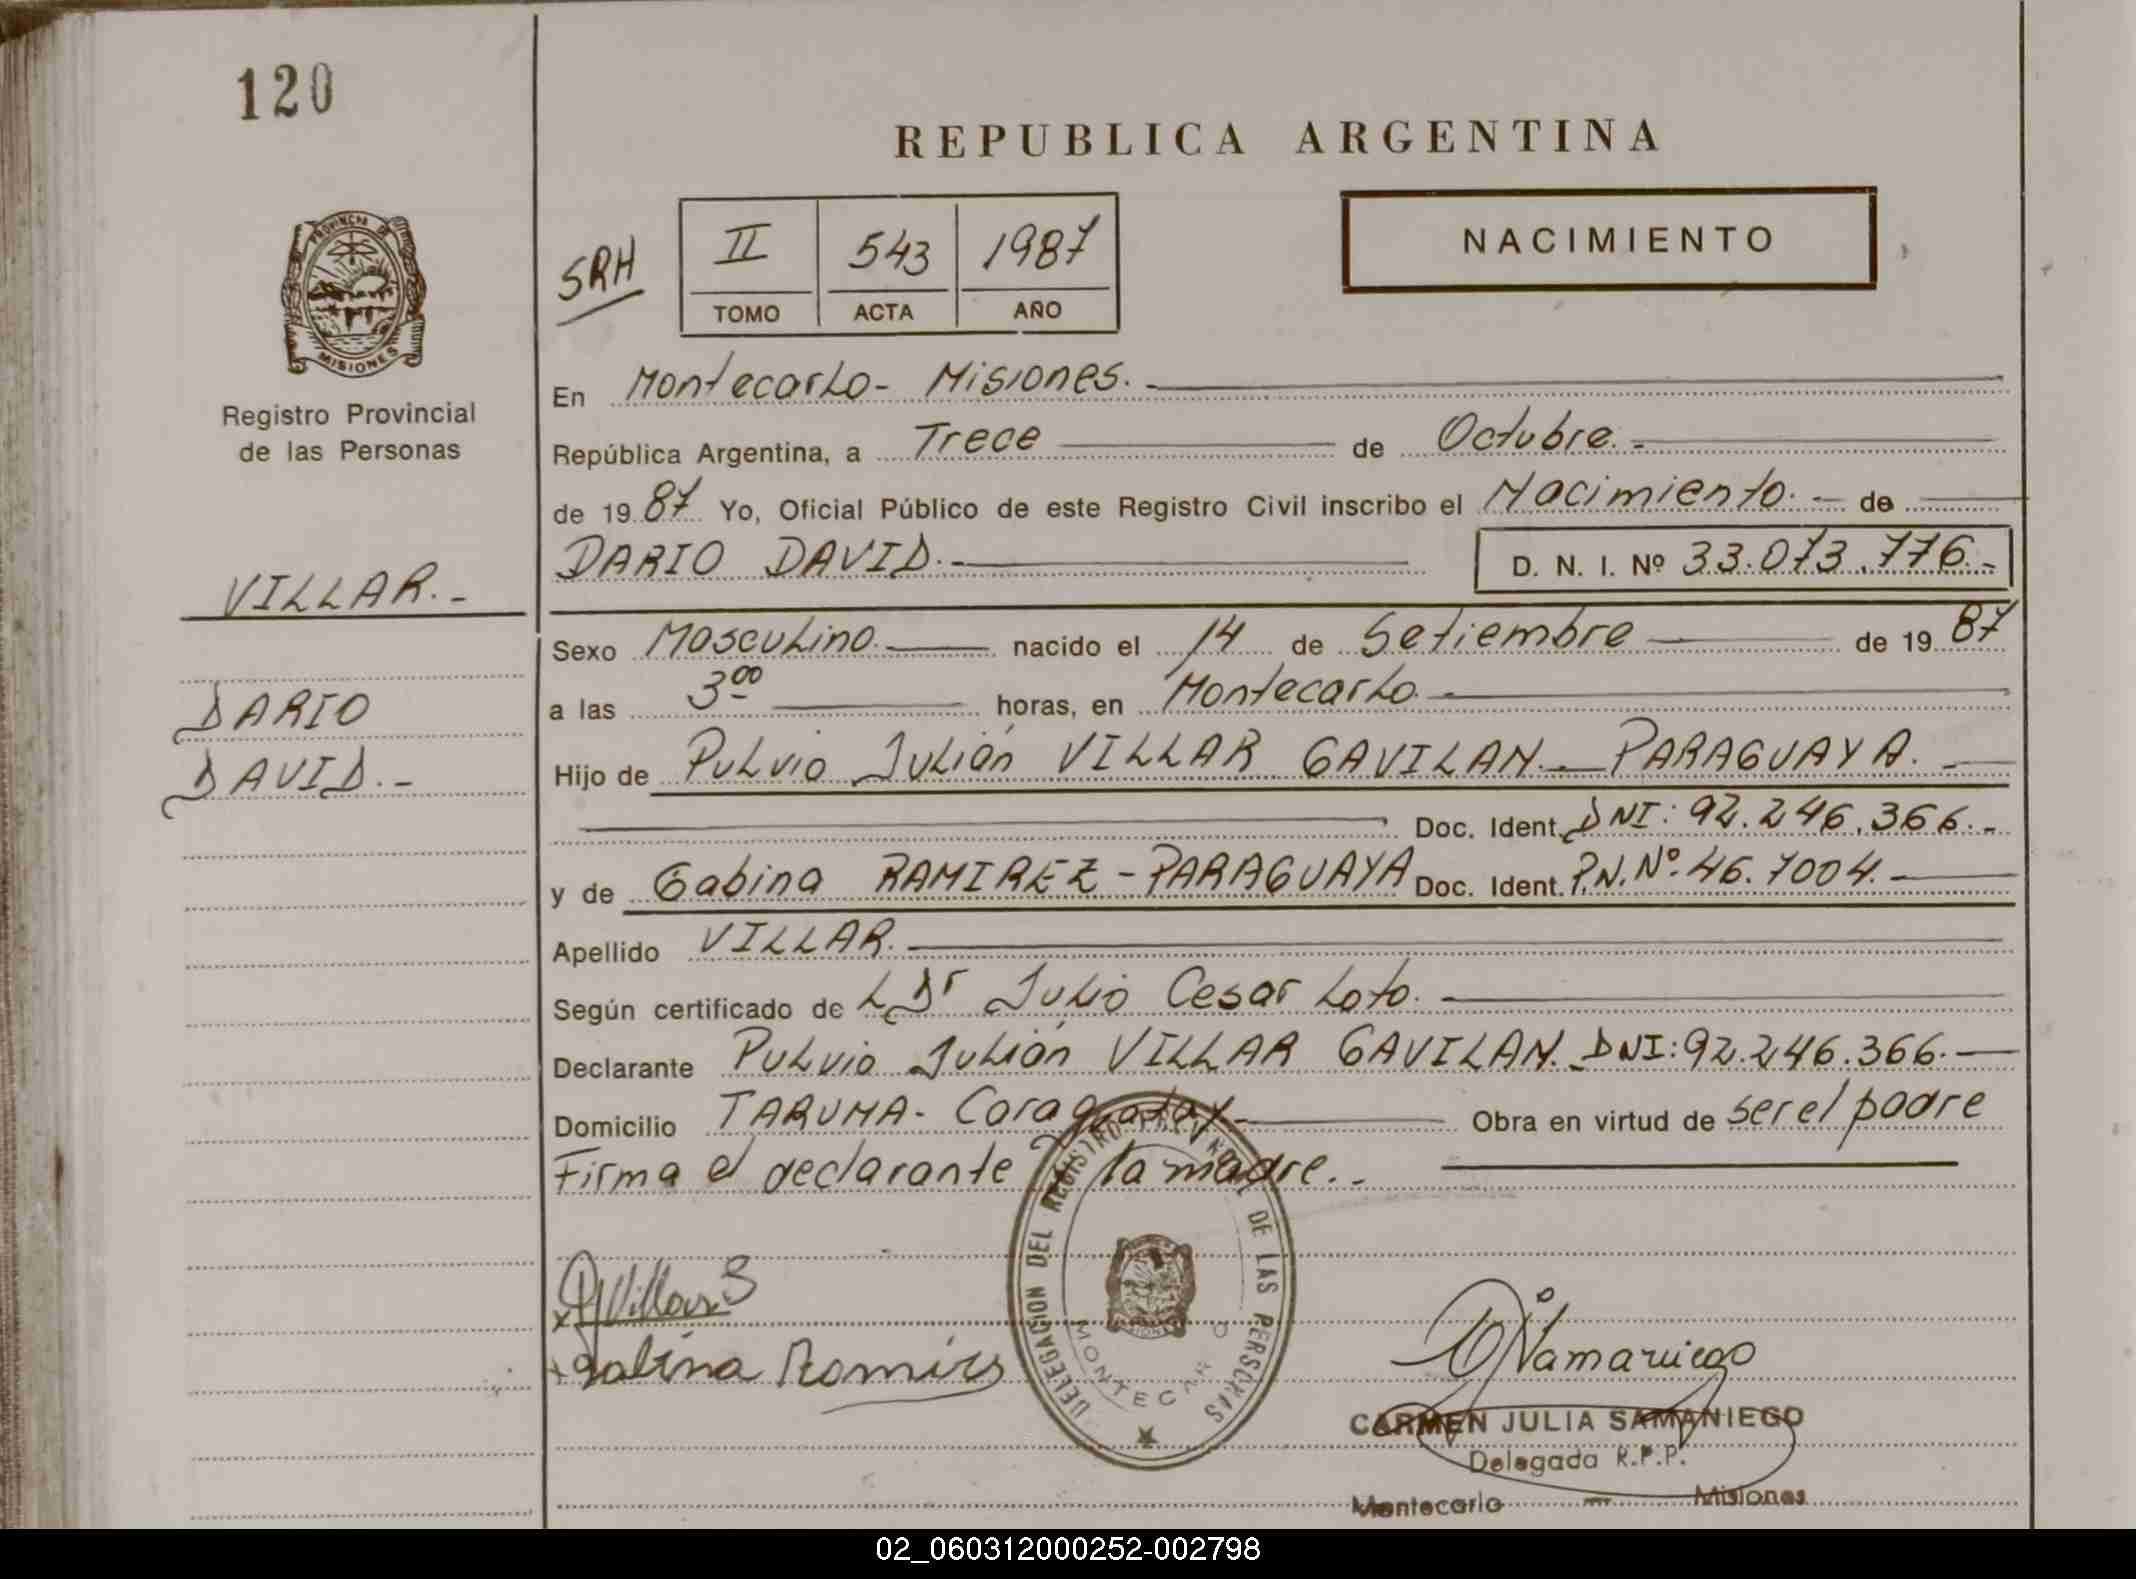 120
REPUBLICA ARGENTINA
PROVINCIA DE
MISIONES
SRH
II 543 1987
TOMO ACTA AÑO
NACIMIENTO
Registro Provincial
de las Personas
VILLAR.-
DARIO
DAVID.-
En Montecarlo - Misiones.
República Argentina, a Trece de Octubre.-
de 1987 Yo, Oficial Público de este Registro Civil inscribo el Nacimiento.- de
DARIO DAVID.- D. N. I. Nº 33.073.776.-
Sexo Masculino.- nacido el 14 de Setiembre de 1987
a las 3⁰⁰ horas, en Montecarlo.-
Hijo de Pulvio Julián VILLAR GAVILAN.- PARAGUAYA.-
Doc. Ident. DNI: 92.246.366.-
y de Gabina RAMIREZ - PARAGUAYA Doc. Ident. P.N. Nº: 46.7004.-
Apellido VILLAR.-
Según certificado de L Dr Julio Cesar Loto.
Declarante Pulvio Julián VILLAR GAVILAN.- DNI: 92.246.366.-
Domicilio TARUMA - Caraguatay.- Obra en virtud de ser el padre
Firma el declarante y la madre.-
DELEGACION DEL REGISTRO PROVINCIAL DE LAS PERSONAS
MONTECARLO
CARMEN JULIA SAMANIEGO
Delegada R.P.P.
Montecarlo - Misiones
02_060312000252-002798